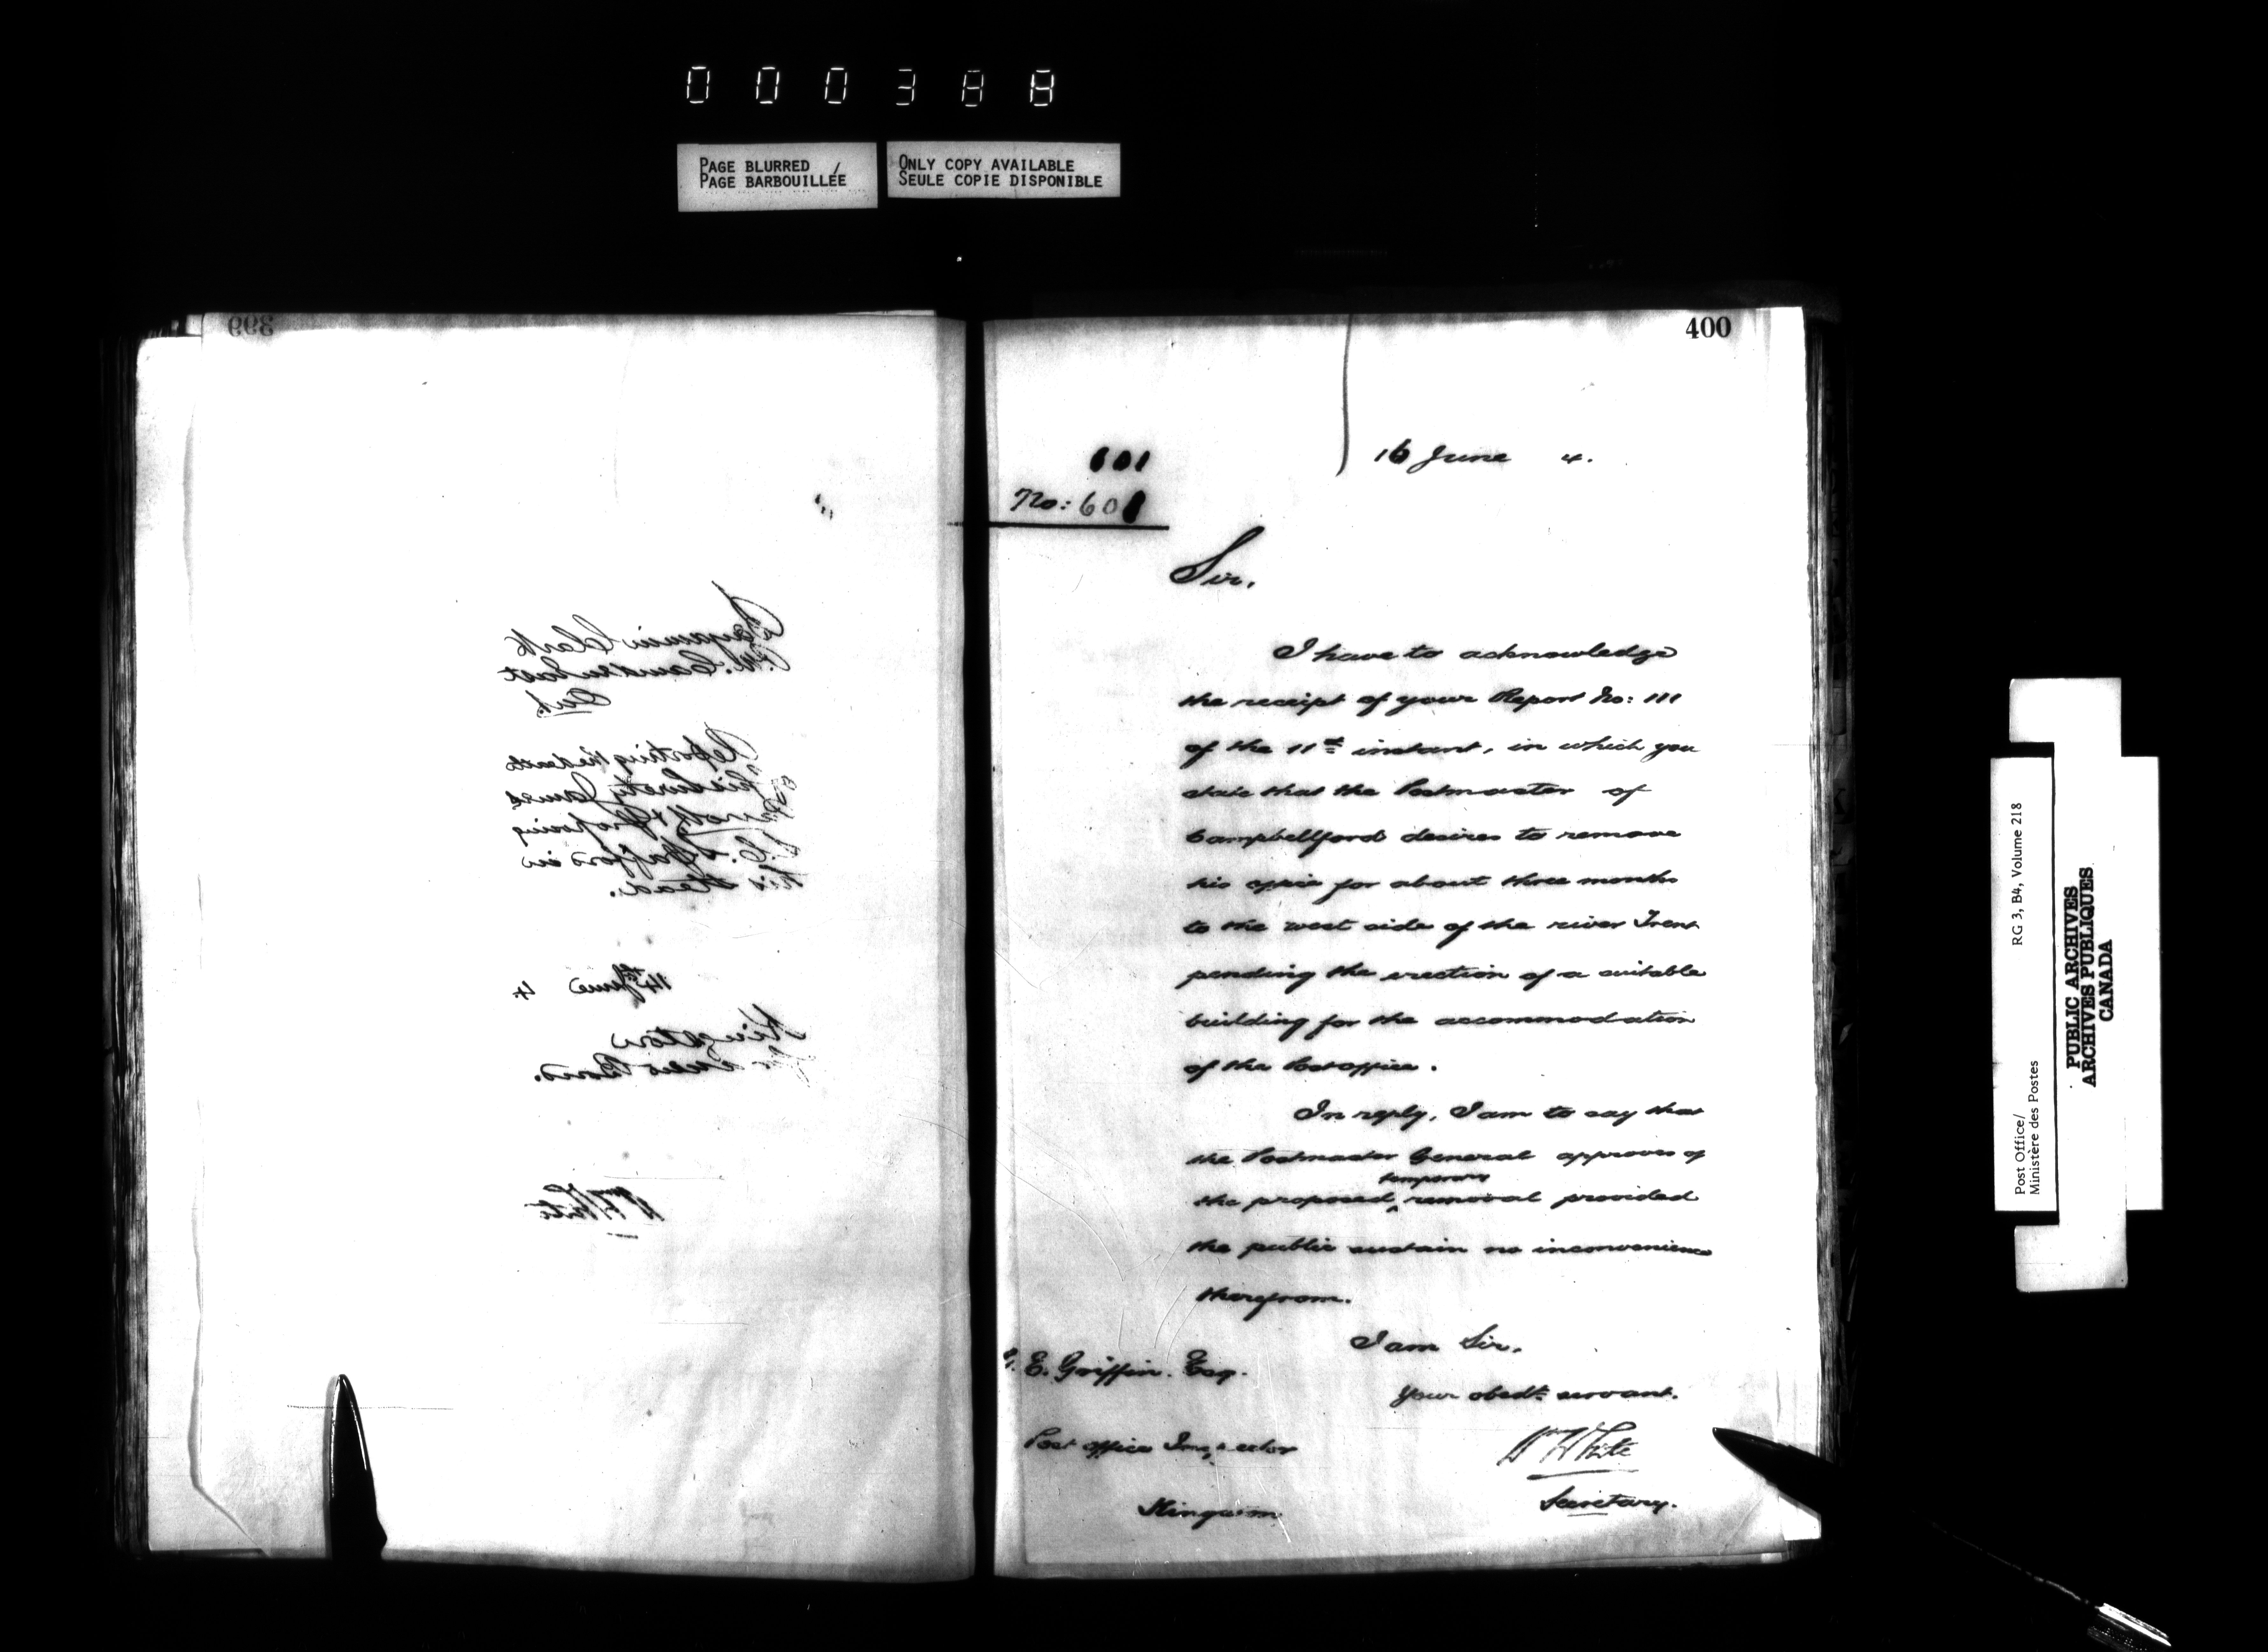 000388
PAGE BLURRED /
PAGE BARBOUILLÉE
ONLY COPY AVAILABLE
SEULE COPIE DISPONIBLE
399
Benjamin Clark
P.M. Camden East
Ont.
Reporting the death
of his Surety James
& proposing
in
his stead.
14th June 4
Kingston
for new Bond.
W White
400
601
No: 601
16 June 4.
Sir,
I have to acknowledge
the receipt of your Report No: 111
of the 11th instant, in which you
state that the Postmaster of
Campbellford desires to remove
his office for about three months
to the west side of the river Trent
pending the erection of a suitable
building for the accommodation
of the Post office.
In reply, I am to say that
the Postmaster General approves of
the proposed ^ temporary removal provided
the public sustain no inconvenience
therefrom.
I am Sir,
Your obedt. servant.
W White
Secretary.
E. Griffin. Esq.
Post office Inspector
Kingston
Post Office/
Ministère des Postes
RG 3, B4, Volume 218
PUBLIC ARCHIVES
ARCHIVES PUBLIQUES
CANADA